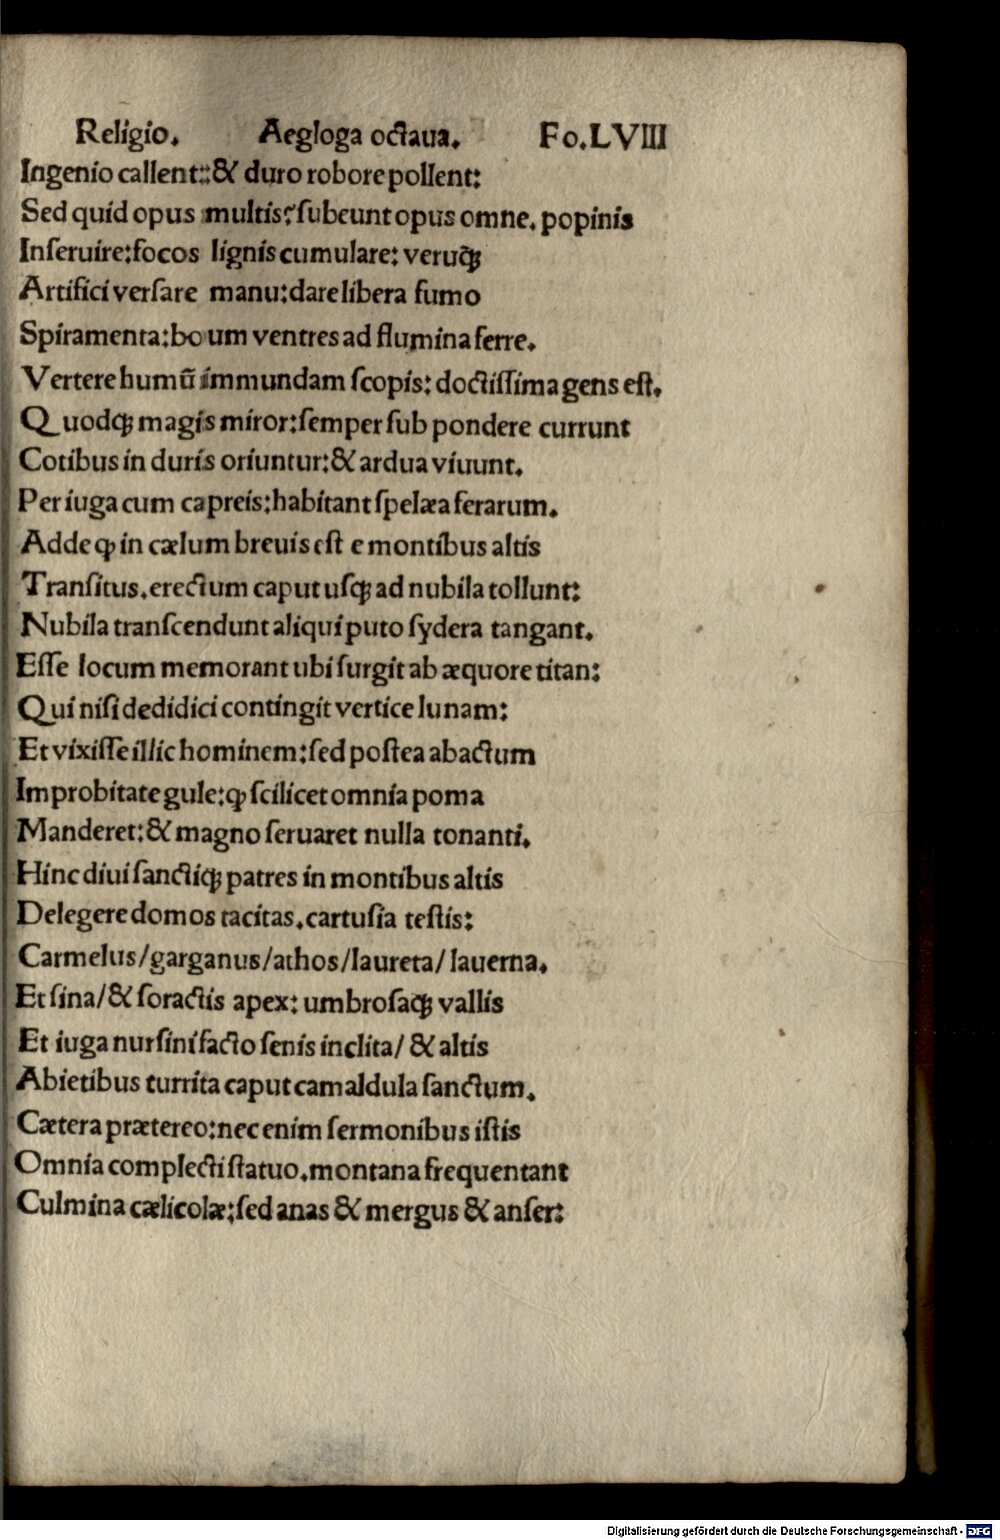 Religio. Aegloga octaua. Fo.LVIII
Ingenio callent:& duro robore pollent:
Sed quid opus multis?ſubeunt opus omne. popinis
Inſeruire:focos lignis cumulare: veruqꝫ
Artifici verſare manu:dare libera fumo
Spiramenta:bo um ventres ad flumina ferre.
Vertere humū immundam ſcopis: doctiſſima gens eſt.
Quodqꝫ magis miror:ſemper ſub pondere currunt
Cotibus in duris oriuntur:& ardua viuunt.
Per iuga cum capreis:habitant ſpelæa ferarum.
Adde ꝙ in cælum breuis eſt e montibus altis
Tranſitus.erectum caput uſqꝫ ad nubila tollunt:
Nubila tranſcendunt aliqui puto ſydera tangant.
Eſſe locum memorant ubi ſurgit ab æquore titan:
Qui niſi dedidici contingit vertice lunam:
Et vixiſſe illic hominem:ſed poſtea abactum
Improbitate gule:ꝙ ſcilicet omnia poma
Manderet:& magno ſeruaret nulla tonanti.
Hinc diui ſanctiqꝫ patres in montibus altis
Delegere domos tacitas.cartuſia teſtis:
Carmelus/garganus/athos/laureta/lauerna.
Et ſina/& ſoractis apex: umbroſaqꝫ vallis
Et iuga nurſini facto ſenis inclita/ & altis
Abietibus turrita caput camaldula ſanctum.
Cætera prætereo:nec enim ſermonibus iſtis
Omnia complecti ſtatuo.montana frequentant
Culmina cælicolæ:ſed anas & mergus & anſer:
Digitalisierung gefördert durch die Deutsche Forschungsgemeinschaft - DFG